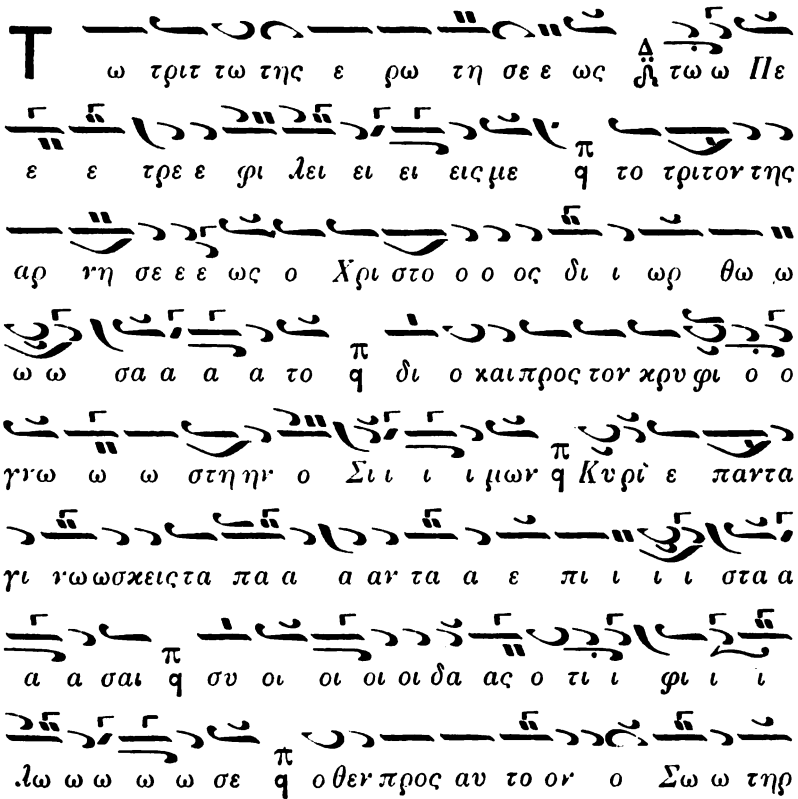 Τ ω τριτ τω της ε ρω τη σε ε ως τω ω Πε
ε ε τρε ε φι λει ει ει εις με π q το τριτον της
αρ νη σε ε ε ως ο Χρι στο ο ο ος δι ι ωρ θω ω
ω ω σα α α α το π q δι ο και προς τον κρυ φι ο ο
γνω ω ω στη ην ο Σι ι ι ι μων π q Κυ ρι ε παντα
γι νω ωσκεις τα πα α α αν τα α ε πι ι ι ι στα α
α α σαι π q συ οι οι οι οι δα ας ο τι ι φι ι ι
λω ω ω ω ω σε π q ο θεν προς αυ το ον ο Σω ω τηρ